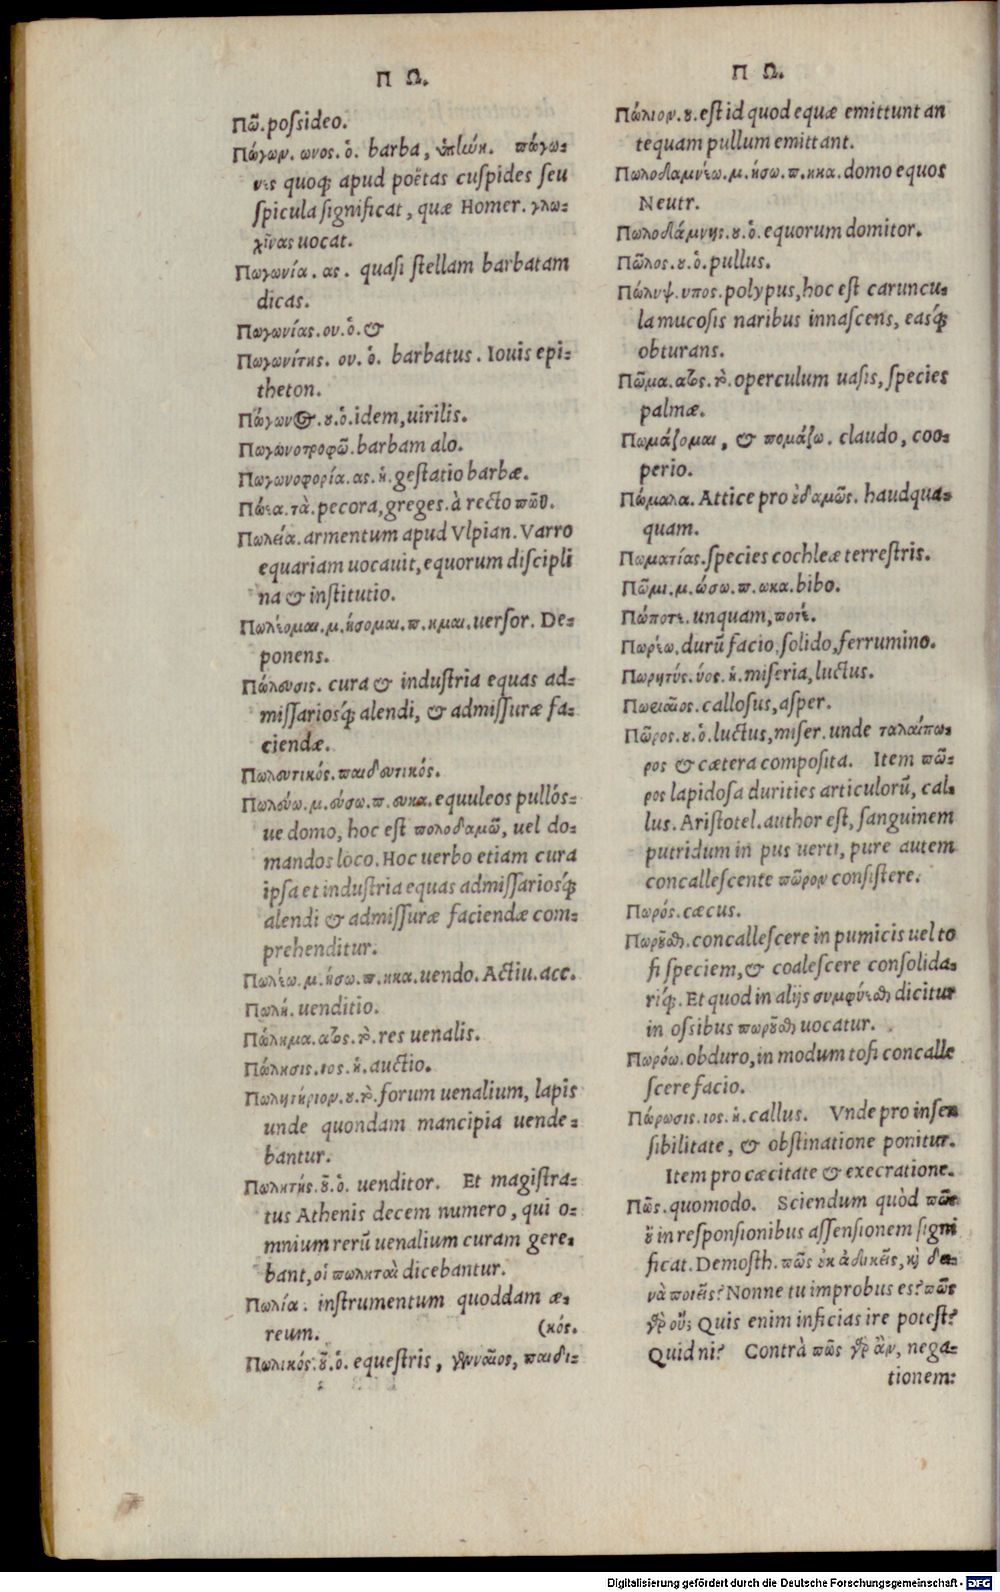 Π Ω.
Πῶ. possideo.
Πώγων. ωνος. ὁ. barba, ὑπήνη. πώγω-
νες quoq; apud poëtas cuspides seu
spicula significat, quæ Homer. γλω-
χῖνας uocat.
Πωγωνία. ας. quasi stellam barbatam
dicas.
Πωγωνίας. ου. ὁ. &
Πωγωνίτης. ου. ὁ. barbatus. Iouis epi-
theton.
Πώγωνος. ȣ. ὁ. idem, uirilis.
Πωγωνοτροφῶ. barbam alo.
Πωγωνοφορία. ας. ἡ. gestatio barbæ.
Πώεα. τὰ. pecora, greges. à recto πῶϋ.
Πωλεία. armentum apud Vlpian. Varro
equariam uocauit, equorum discipli
na & institutio.
Πωλέομαι. μ. ήσομαι. π. ημαι. uersor. De-
ponens.
Πώλευσις. cura & industria equas ad-
missariosq́; alendi, & admissuræ fa-
ciendæ.
Πωλευτικός. παιδευτικός.
Πωλεύω. μ. εύσω. π. ευκα. equuleos pullós-
ue domo, hoc est πολοδαμῶ, uel do-
mandos loco. Hoc uerbo etiam cura
ipsa et industria equas admissariosq́;
alendi & admissuræ faciendæ com-
prehenditur.
Πωλέω. μ. ήσω. π. ηκα. uendo. Actiu. acc.
Πωλή. uenditio.
Πώλημα. ατος. τὸ. res uenalis.
Πώλησις. ιος. ἡ. auctio.
Πωλητήριον. ȣ. τὸ. forum uenalium, lapis
unde quondam mancipia uende-
bantur.
Πωλητής. ȣ͂. ὁ. uenditor. Et magistra-
tus Athenis decem numero, qui o-
mnium rerū uenalium curam gere-
bant, οἱ πωληταὶ dicebantur.
Πωλία. instrumentum quoddam æ-
reum. (κός.
Πωλικός. ȣ͂. ὁ. equestris, γενναῖος, παιδι-
Π Ω.
Πώλιον. ȣ. est id quod equæ emittunt an
tequam pullum emittant.
Πωλοδαμνέω. μ. ήσω. π. ηκα. domo equos
Neutr.
Πωλοδάμνης. ȣ. ὁ. equorum domitor.
Πῶλος. ȣ. ὁ. pullus.
Πώλυψ. υπος. polypus, hoc est caruncu-
la mucosis naribus innascens, easq́;
obturans.
Πῶμα. ατος. τὸ. operculum uasis, species
palmæ.
Πωμάζομαι, & πομάζω. claudo, coo-
perio.
Πώμαλα. Attice pro ȣ̓δαμῶς. haudqua-
quam.
Πωματίας. species cochleæ terrestris.
Πῶμι. μ. ώσω. π. ωκα. bibo.
Πώποτε. unquam, ποτέ.
Πωρέω. durū facio, solido, ferrumino.
Πωρητύς. ύος. ἡ. miseria, luctus.
Πωριαῖος. callosus, asper.
Πῶρος. ȣ. ὁ. luctus, miser. unde ταλαίπω-
ρος & cætera composita. Item πῶ-
ρος lapidosa durities articulorū, cal-
lus. Aristotel. author est, sanguinem
putridum in pus uerti, pure autem
concallescente πῶρον consistere.
Πωρός. cæcus.
Πωρȣ͂σθαι. concallescere in pumicis uel to
fi speciem, & coalescere consolida-
riq́;. Et quod in alijs συμφύεσθαι dicitur
in ossibus πωρȣ͂σθαι uocatur.
Πωρόω. obduro, in modum tofi concalle
scere facio.
Πώρωσις. ιος. ἡ. callus. Vnde pro insen
sibilitate, & obstinatione ponitur.
Item pro cæcitate & execratione.
Πῶς. quomodo. Sciendum quòd πῶς
ȣ̓ in responsionibus assensionem signi
ficat. Demosth. πῶς ȣ̓κ ἀδικεῖς, καὶ δει-
νὰ ποιεῖς? Nonne tu improbus es? πῶς
γὰρ οὔ; Quis enim inficias ire potest?
Quid ni? Contrà πῶς γὰρ ἂν, nega-
tionem:
Digitalisierung gefördert durch die Deutsche Forschungsgemeinschaft - DFG